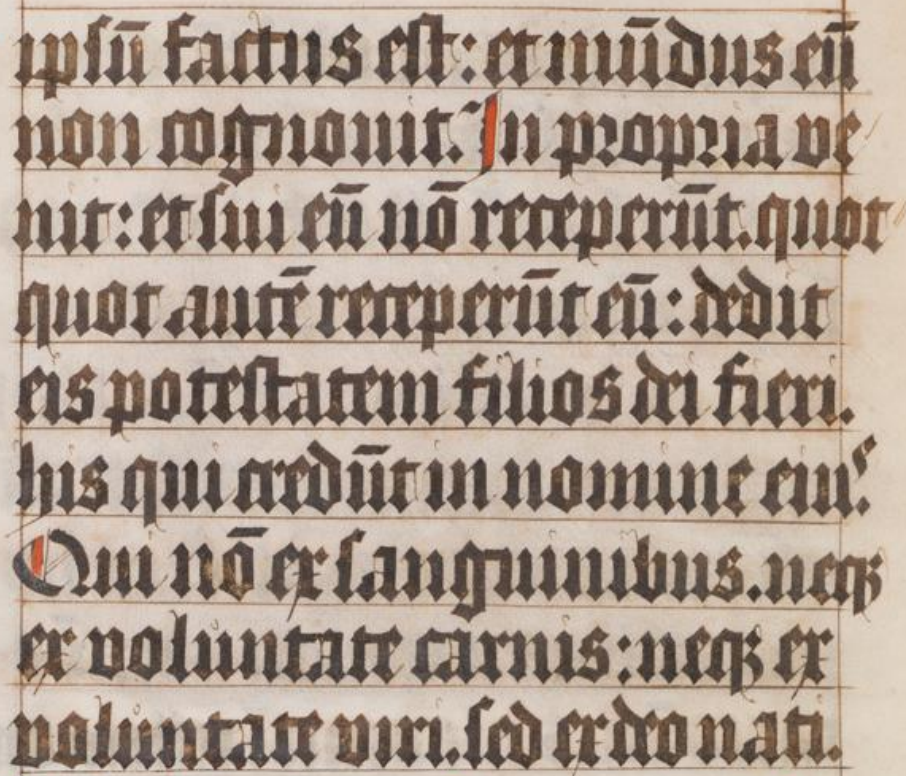 ipsū factus est: et mūdus eū
non cognouit. In propria ve
nit: et sui eū nō receperūt. quot
quot autē receperūt eū: dedit
eis potestatem filios dei fieri.
his qui credūt in nomine eiuꝰ.
Qui nō ex sanguinibus. neqꝫ
ex voluntate carnis: neqꝫ ex
voluntate viri. sed ex deo nati.